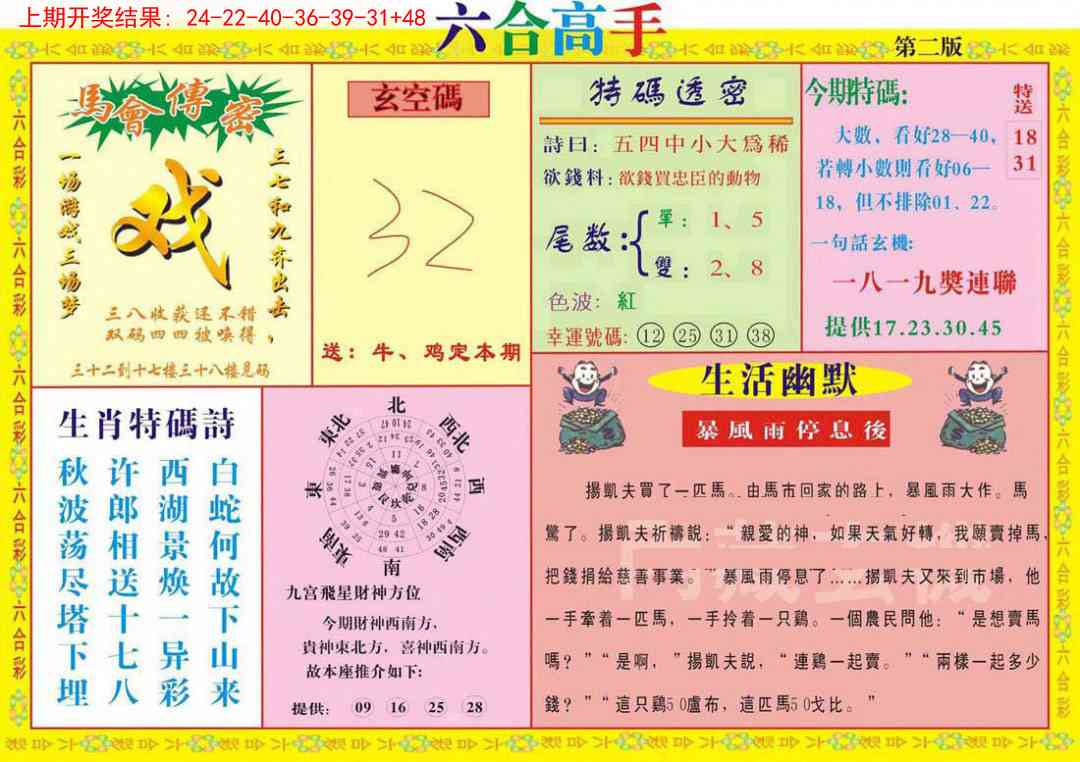 上期开奖结果：24-22-40-36-39-31+48
六合高手
第二版
馬會傳密
一场游戏三场梦
戏
三七和九齐出击
三八收获还不错
双码四四被唤得，
三十二到十七楼三十八楼见码
玄空碼
32
送：牛、鸡定本期
特碼透密
詩曰：五四中小大爲稀
欲錢料：欲錢買忠臣的動物
尾数：
單：1、5
雙：2、8
色波：紅
幸運號碼：12 25 31 38
今期特碼：
特送
18
31
大數，看好28—40，
若轉小數則看好06—
18，但不排除01、22。
一句話玄機：
一八一九獎連聯
提供17.23.30.45
生肖特碼詩
白蛇何故下山来
西湖景焕一异彩
许郎相送十七八
秋波荡尽塔下埋
北
東北
西北
東
西
東南
西南
南
九宫飛星財神方位
今期財神西南方，
貴神東北方，喜神西南方。
故本座推介如下：
提供：09 16 25 28
生活幽默
暴風雨停息後
揚凱夫買了一匹馬。由馬市回家的路上，暴風雨大作。馬
驚了。揚凱夫祈禱説：“親愛的神，如果天氣好轉，我願賣掉馬，
把錢捐給慈善事業。”暴風雨停息了……揚凱夫又來到市場，他
一手牽着一匹馬，一手拎着一只鷄。一個農民問他：“是想賣馬
嗎？”“是啊，”揚凱夫説，“連鷄一起賣。”“兩樣一起多少
錢？”“這只鷄50盧布，這匹馬50戈比。”